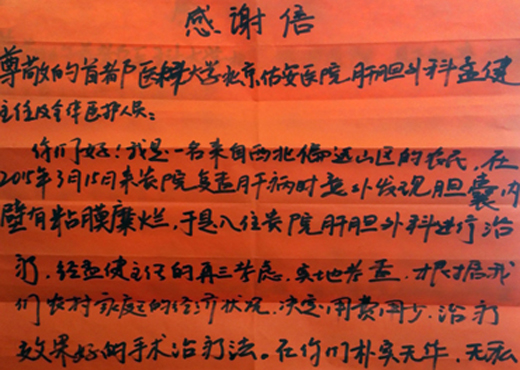 感谢信
尊敬的首都医科大学北京佑安医院肝胆外科孟健
主任及全体医护人员：
你们好！我是一名来自西北偏远山区的农民，在
2015年3月15日来贵院复查肝病时意外发现胆囊内
壁有粘膜糜烂，于是入住贵院肝胆外科进行治
疗，经孟健主任的再三考虑，实地考查，才根据我
们农村家庭的经济状况，决定用费用少，治疗
效果好的手术治疗法。在你们朴实无华，无私